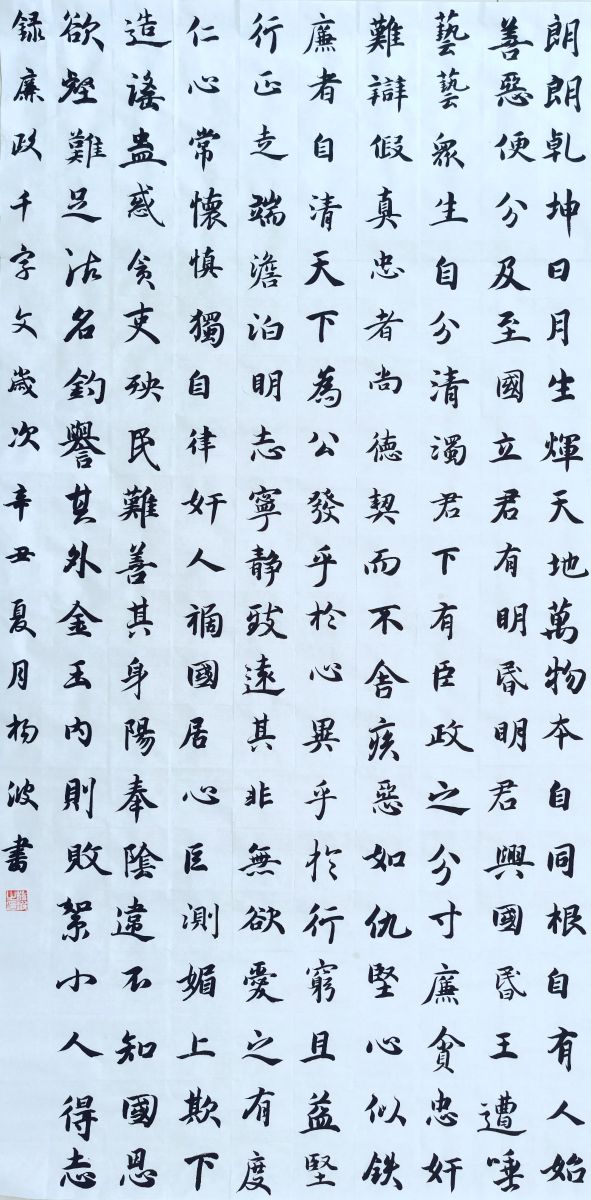 朗朗乾坤日月生輝天地萬物本自同根自有人始
善惡便分及至國立君有明昬明君興國昬王遭唾
藝藝眾生自分清濁君下有臣政之分寸廉貪忠奸
難辯假真忠者尚德契而不舍疾惡如仇堅心似鉄
廉者自清天下為公發乎於心異乎於行窮且益堅
行正走端澹泊明志寧静致遠其非無欲愛之有度
仁心常懷慎獨自律奸人禍國居心叵測媚上欺下
造謠蠱惑貪吏殃民難善其身陽奉陰違不知國恩
欲壑難足沽名釣譽其外金玉内則敗絮小人得志
録廉政千字文歲次辛丑夏月楊波書